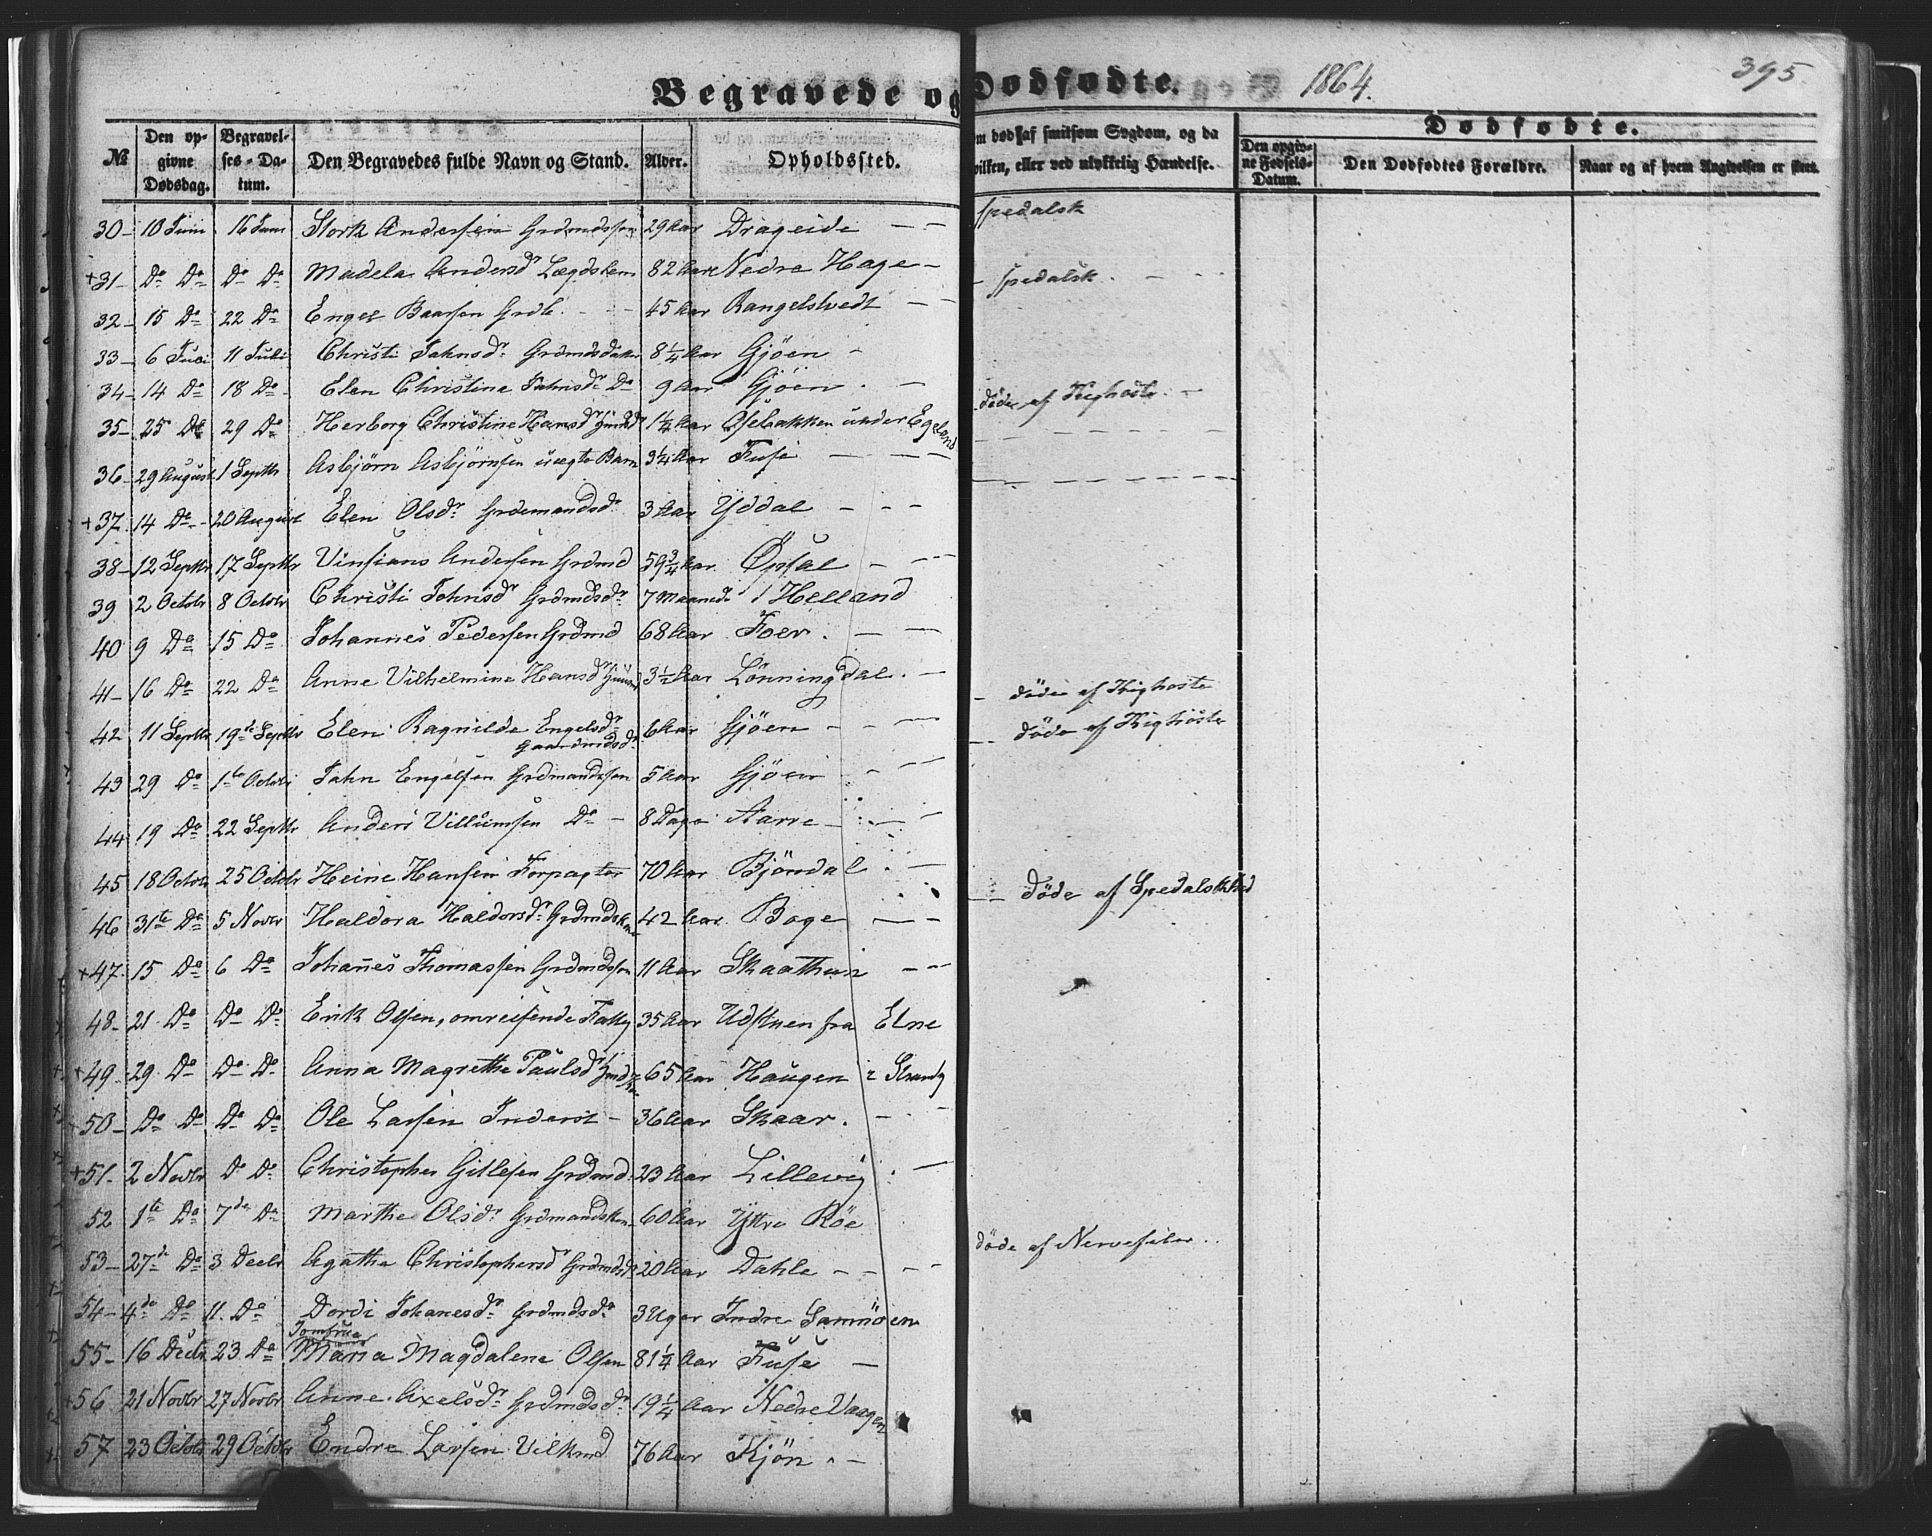 Begravede og Dødfødte. 1864. 395
№ Den opgivne Dødsdag. Begravelses-Datum. Den Begravedes fulde Navn og Stand. Alder. Opholdssted. død af smitsom Sygdom, og da hvilken, eller ved ulykkelig Hændelse. Dødfødte.
Den opgivne Fødsels-Datum. Den Dødfødtes Forældre. Naar og af hvem Angivelsen er skeet.
30 10 Juni 16 Juni Stork Andersen Grdmdssøn 29 Aar Drageide Spedalsk
+31 Do Do Do Do Madela Andersdr Lægdslem 82 Aar Nedre Hage Spedalsk
32 15 Do 22 Do Engel Baarsen Grdb. 45 Aar Rangelstvedt
33 6 Juli 11 Juli Christi Jahnsdr Grdmdsdatter 8¼ Aar Gjøen
34 14 Do 18 Do Elen Christine Jahnsdr Do 9 Aar Gjøen døde af Kighoste
35 25 Do 29 Do Herborg Christine Hansdr 1¼ Aar Øsebakken under Egeland
36 29 August 1 Septbr Asbjørn Asbjørnsen uægte Barn 3¼ Aar Fuse
+37 14 Do 20 August Elen Olsdr Grdemandsdr 3 Aar Yddal
38 12 Septbr 17 Septbr Vinsians Andersen Grdmd 59¾ Aar Øpsal
39 2 Octobr 8 Octobr Christi Johnsdr Grdmdsdr 7 Maaneder Helland
40 9 Do 15 Do Johannes Pedersen Grdmd 68 Aar Foer.
41 16 Do 22 Do Anne Vilhelmine Hansdr 3½ Aar Lønningdal døde af Kighoste
42 11 Septbr 19de Septbr Elen Ragnilde Engelsdr Gaardmdsdr 6 Aar Gjøen døde af Kighoste
43 29 Do 1ste Octobr Jahn Engelsen Grdmandssøn 5 Aar Gjøen
44 19 Do 22 Septbr Anders Villumsen Do 8 Dage Aarre
45 18 Octobr 25 Octobr Heine Hansen Forpagter 70 Aar Bjøndal døde af Spedalskhed
46 31te Do 5 Novbr Haldora Haldorsdr Grdmdskone 42 Aar Boge
+47 15 Do 6 Do Johañes Thomassen Grdmdssøn 11 Aar Skaathun
48 21 Do Do Do Erik Olsen, omreisende Fattig 35 Aar Udstuen fra Elne
+49 29 Do Do Do Anna Magrethe Paulsdr 65 Aar Haugen i Strandv
50 Do Do Do Do Ole Larsen Inderst 36 Aar Skaar.
+51 2 Novbr Do Do Christopher Gitlesen Grdmd 23 Aar Lillevig
52 1ste Do 7de Do Marthe Olsdr Grdmandskone 60 Aar Yttre Røe
53 27de Do 3 Decbr Agathe Christophersdr Grdmdsdr 20 Aar Dahle døde af Nervefeber.
54 4de Do 11. Do Dordi Johanesdr Grdmdsdr 3 Uger Indre Samnøen
55 16 Decbr 23 Do Jomfrue Maria Magdalene Olsen 81¼ Aar Fuse
+56 21 Novbr 27 Novbr Anne Axelsdr Grdmdsdr 19¼ Aar Nedre Vaagen
57 23 Octobr 29 Octobr Endre Larsen Vilkmd 76 Aar Kjøn